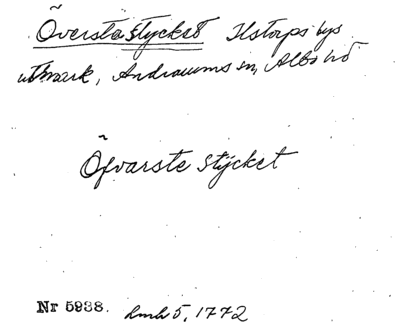 Översta stycket Ilstorps bys
utmark, Andrarums sn, Albo hd
Öfvarste Stycket
Nr 5938. lmh 5, 1772